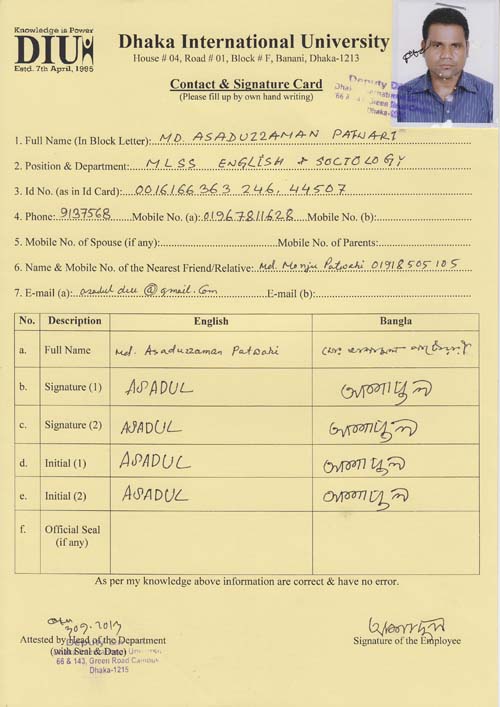 Knowledge is Power
DIU
Estd. 7th April, 1995
Dhaka International University
House # 04, Road # 01, Block # F, Banani, Dhaka-1213
Contact & Signature Card
(Please fill up by own hand writing)
Deputy
66
1. Full Name (In Block Letter): MD. ASADUZZAMAN PATWARI
2. Position & Department: MLSS ENGLISH & SOCTOLOGY
3. Id No. (as in Id Card): 0016166363 246, 44507
4. Phone: 9137568 Mobile No. (a): 01967811628 Mobile No. (b):
5. Mobile No. of Spouse (if any): Mobile No. of Parents:
6. Name & Mobile No. of the Nearest Friend/Relative: Md. Monju Patwari 01918505105
7. E-mail (a): asadul diu @gmail.Com E-mail (b):
No. Description English Bangla
a. Full Name Md. Asaduzzaman Patwari
b. Signature (1) ASADUL আসাদুল
c. Signature (2) ASADUL আসাদুল
d. Initial (1) ASADUL আসাদুল
e. Initial (2) ASADUL আসাদুল
f. Official Seal (if any)
As per my knowledge above information are correct & have no error.
আসাদুল
Attested by Head of the Department Signature of the Employee
(with Seal & Date)
66 & 143, Green Road Campus
Dhaka-1215